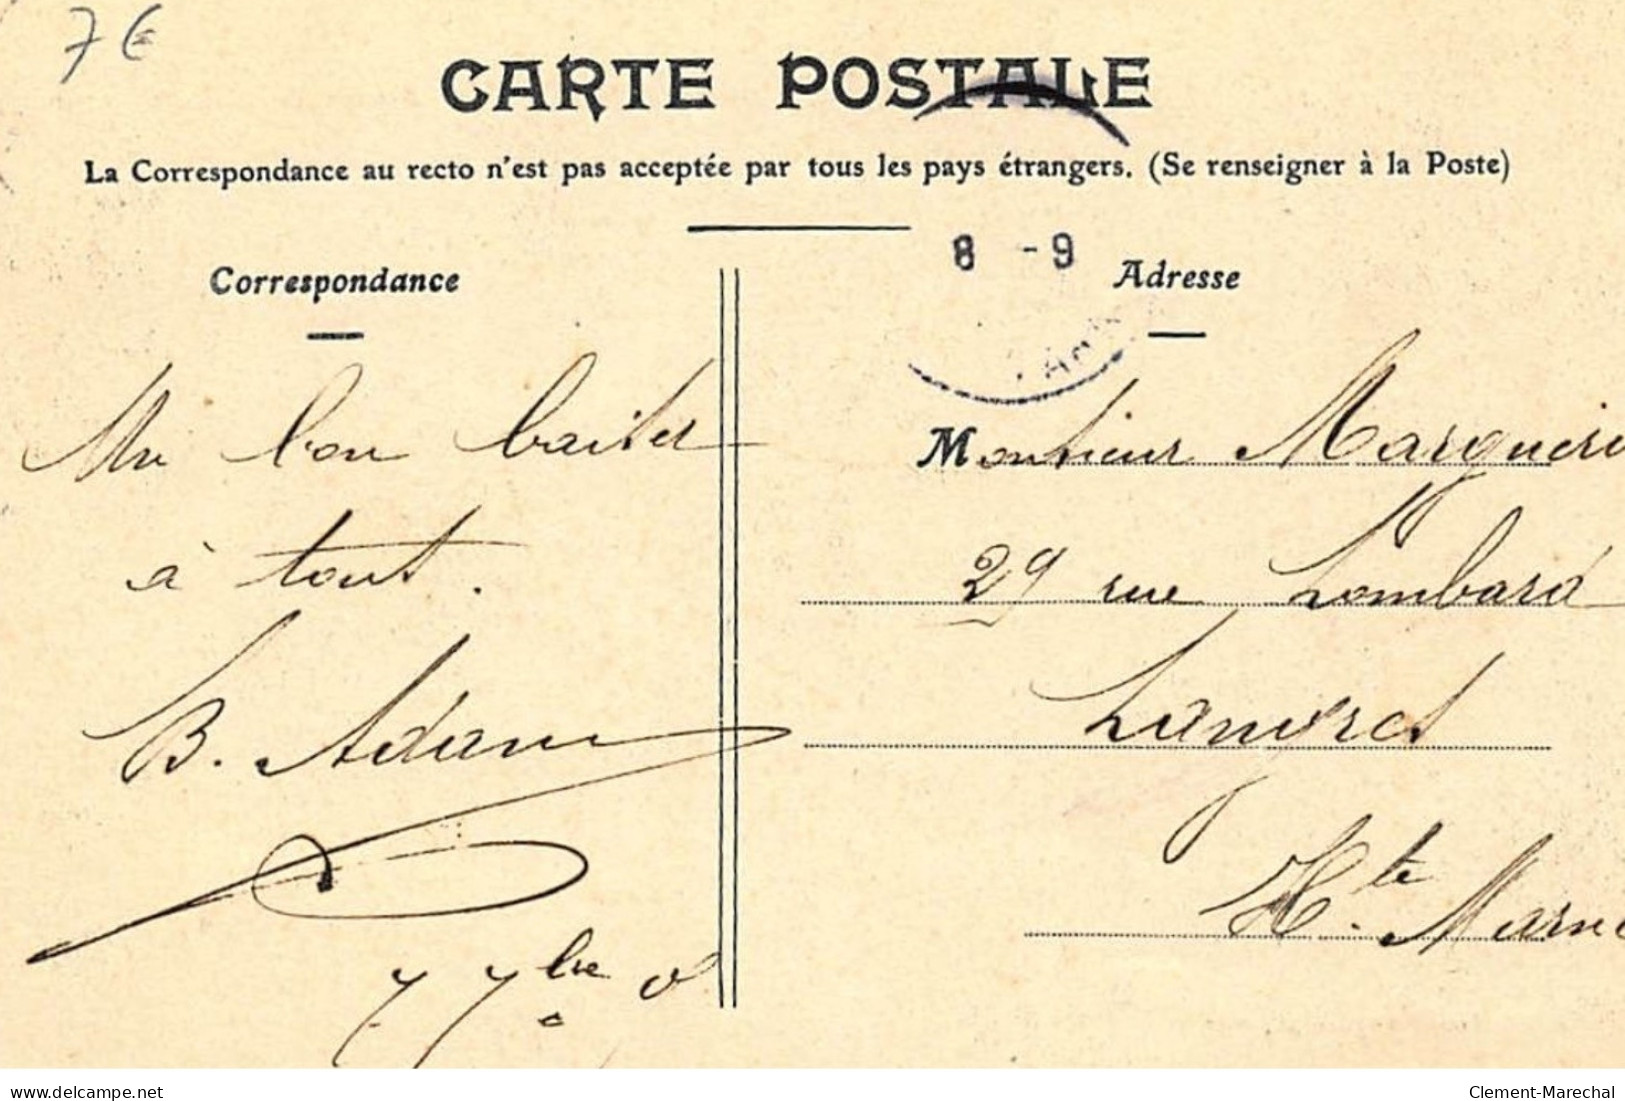 7 €
CARTE POSTALE
La Correspondance au recto n'est pas acceptée par tous les pays étrangers. (Se renseigner à la Poste)
8 - 9
Correspondance
Adresse
Un bon baiser
à tout.
B. Adam
7 7bre
Monsieur
29 rue Lombard
Langres
Hte Marne
delcampe.net
Clement-Marechal